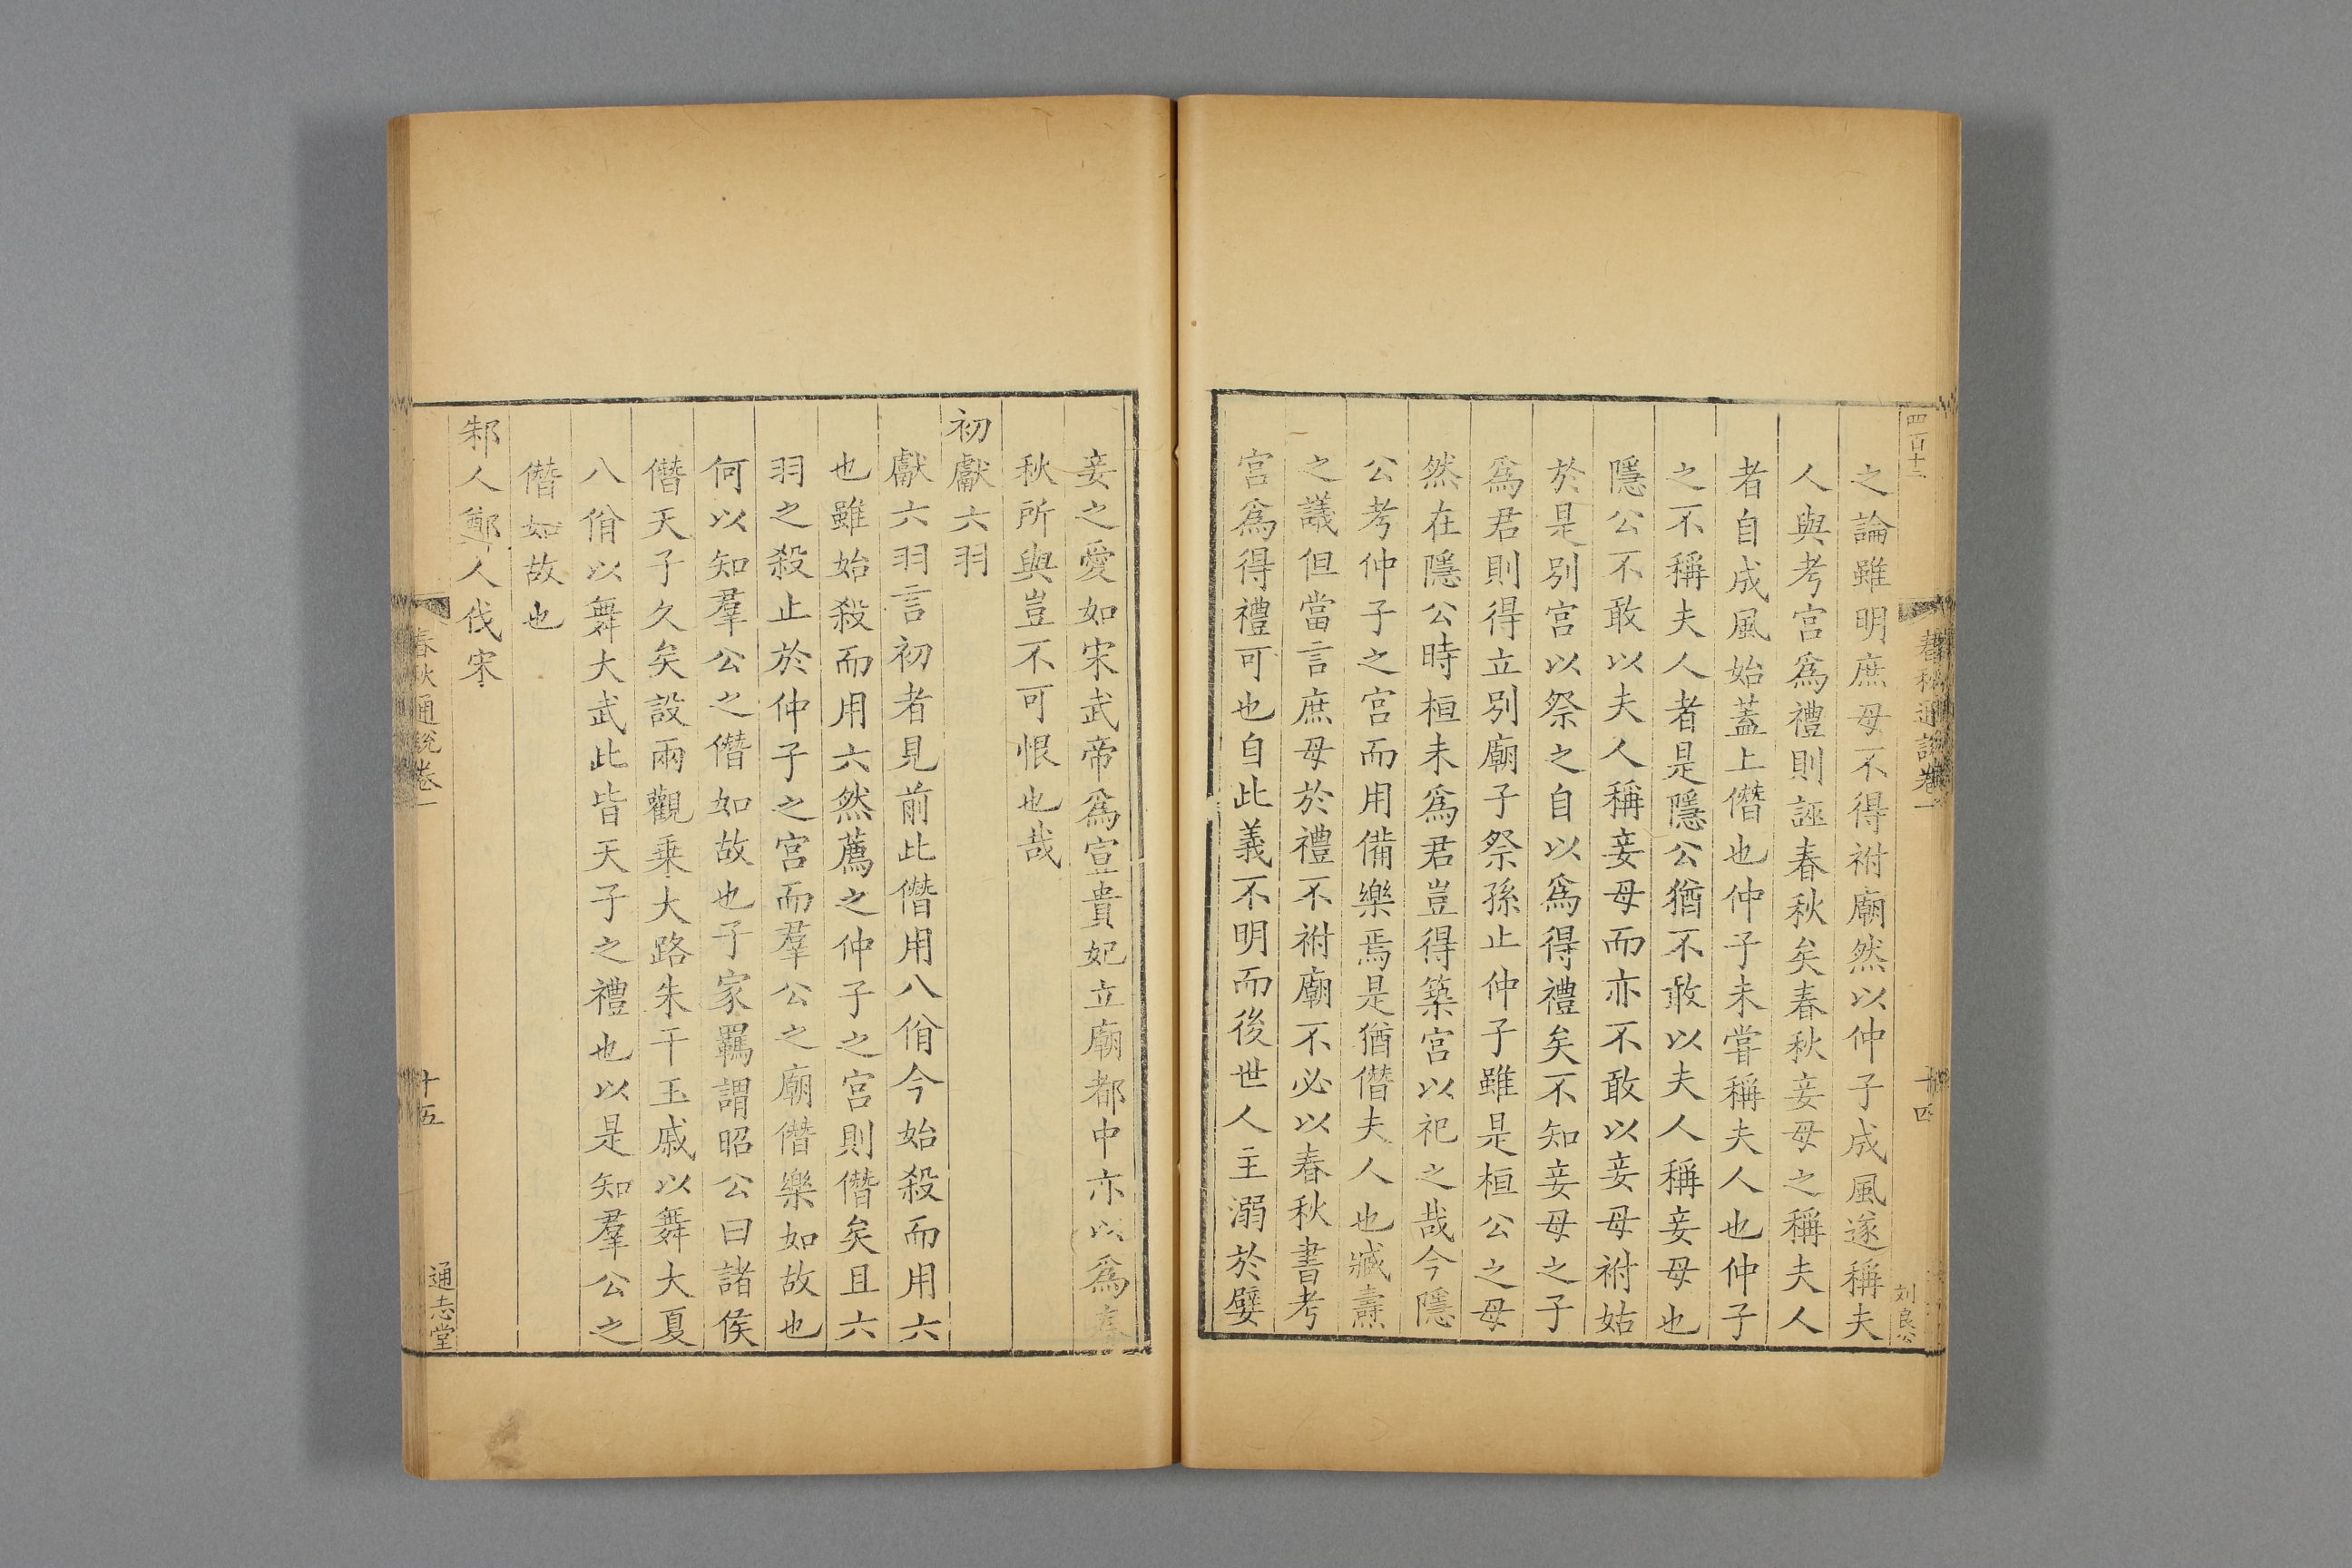 四百十二
春秋通說卷一
十四
之論雖明庶母不得祔廟然以仲子成風遂稱夫
人與考宮爲禮則誣春秋矣春秋妾母之稱夫人
者自成風始蓋上僭也仲子未嘗稱夫人也仲子
之不稱夫人者是隱公猶不敢以夫人稱妾母也
隱公不敢以夫人稱妾母而亦不敢以妾母祔姑
於是別宮以祭之自以爲得禮矣不知妾母之子
爲君則得立別廟子祭孫止仲子雖是桓公之母
然在隱公時桓未爲君豈得築宮以祀之哉今隱
公考仲子之宮而用備樂焉是猶僭夫人也臧燾
之議但當言庶母於禮不祔廟不必以春秋書考
宮爲得禮可也自此義不明而後世人主溺於嬖
妾之愛如宋武帝爲宣貴妃立廟都中亦以爲春
秋所與豈不可恨也哉
初獻六羽
獻六羽言初者見前此僭用八佾今始殺而用六
也雖始殺而用六然薦之仲子之宮則僭矣且六
羽之殺止於仲子之宮而羣公之廟僭樂如故也
何以知羣公之僭如故也子家羈謂昭公曰諸侯
僭天子久矣設兩觀乗大路朱干玉戚以舞大夏
八佾以舞大武此皆天子之禮也以是知羣公之
僭如故也
邾人鄭人伐宋
春秋通說卷一
十五
通志堂